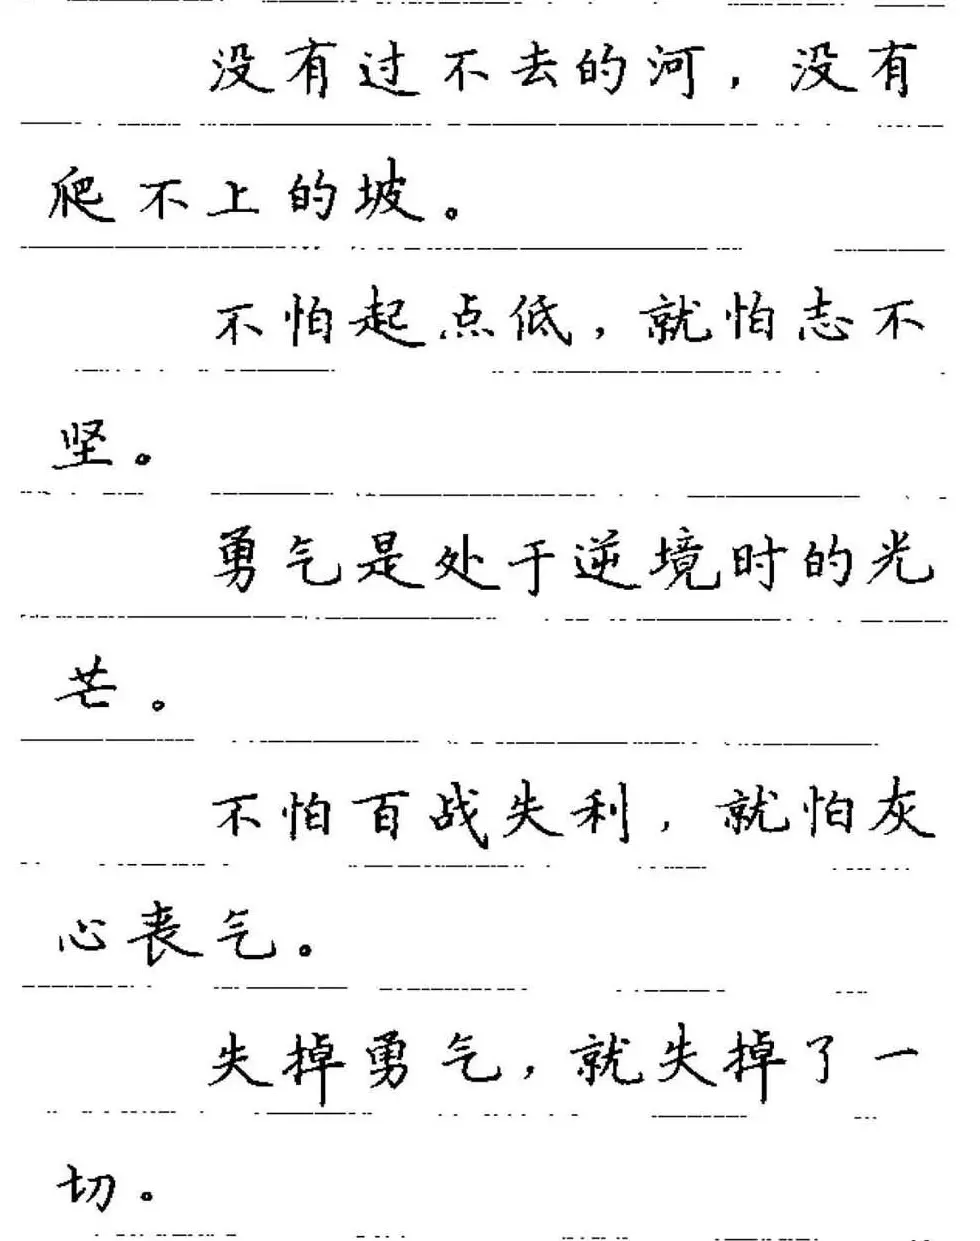 没有过不去的河，没有
爬不上的坡。
不怕起点低，就怕志不
坚。
勇气是处于逆境时的光
芒。
不怕百战失利，就怕灰
心丧气。
失掉勇气，就失掉了一
切。